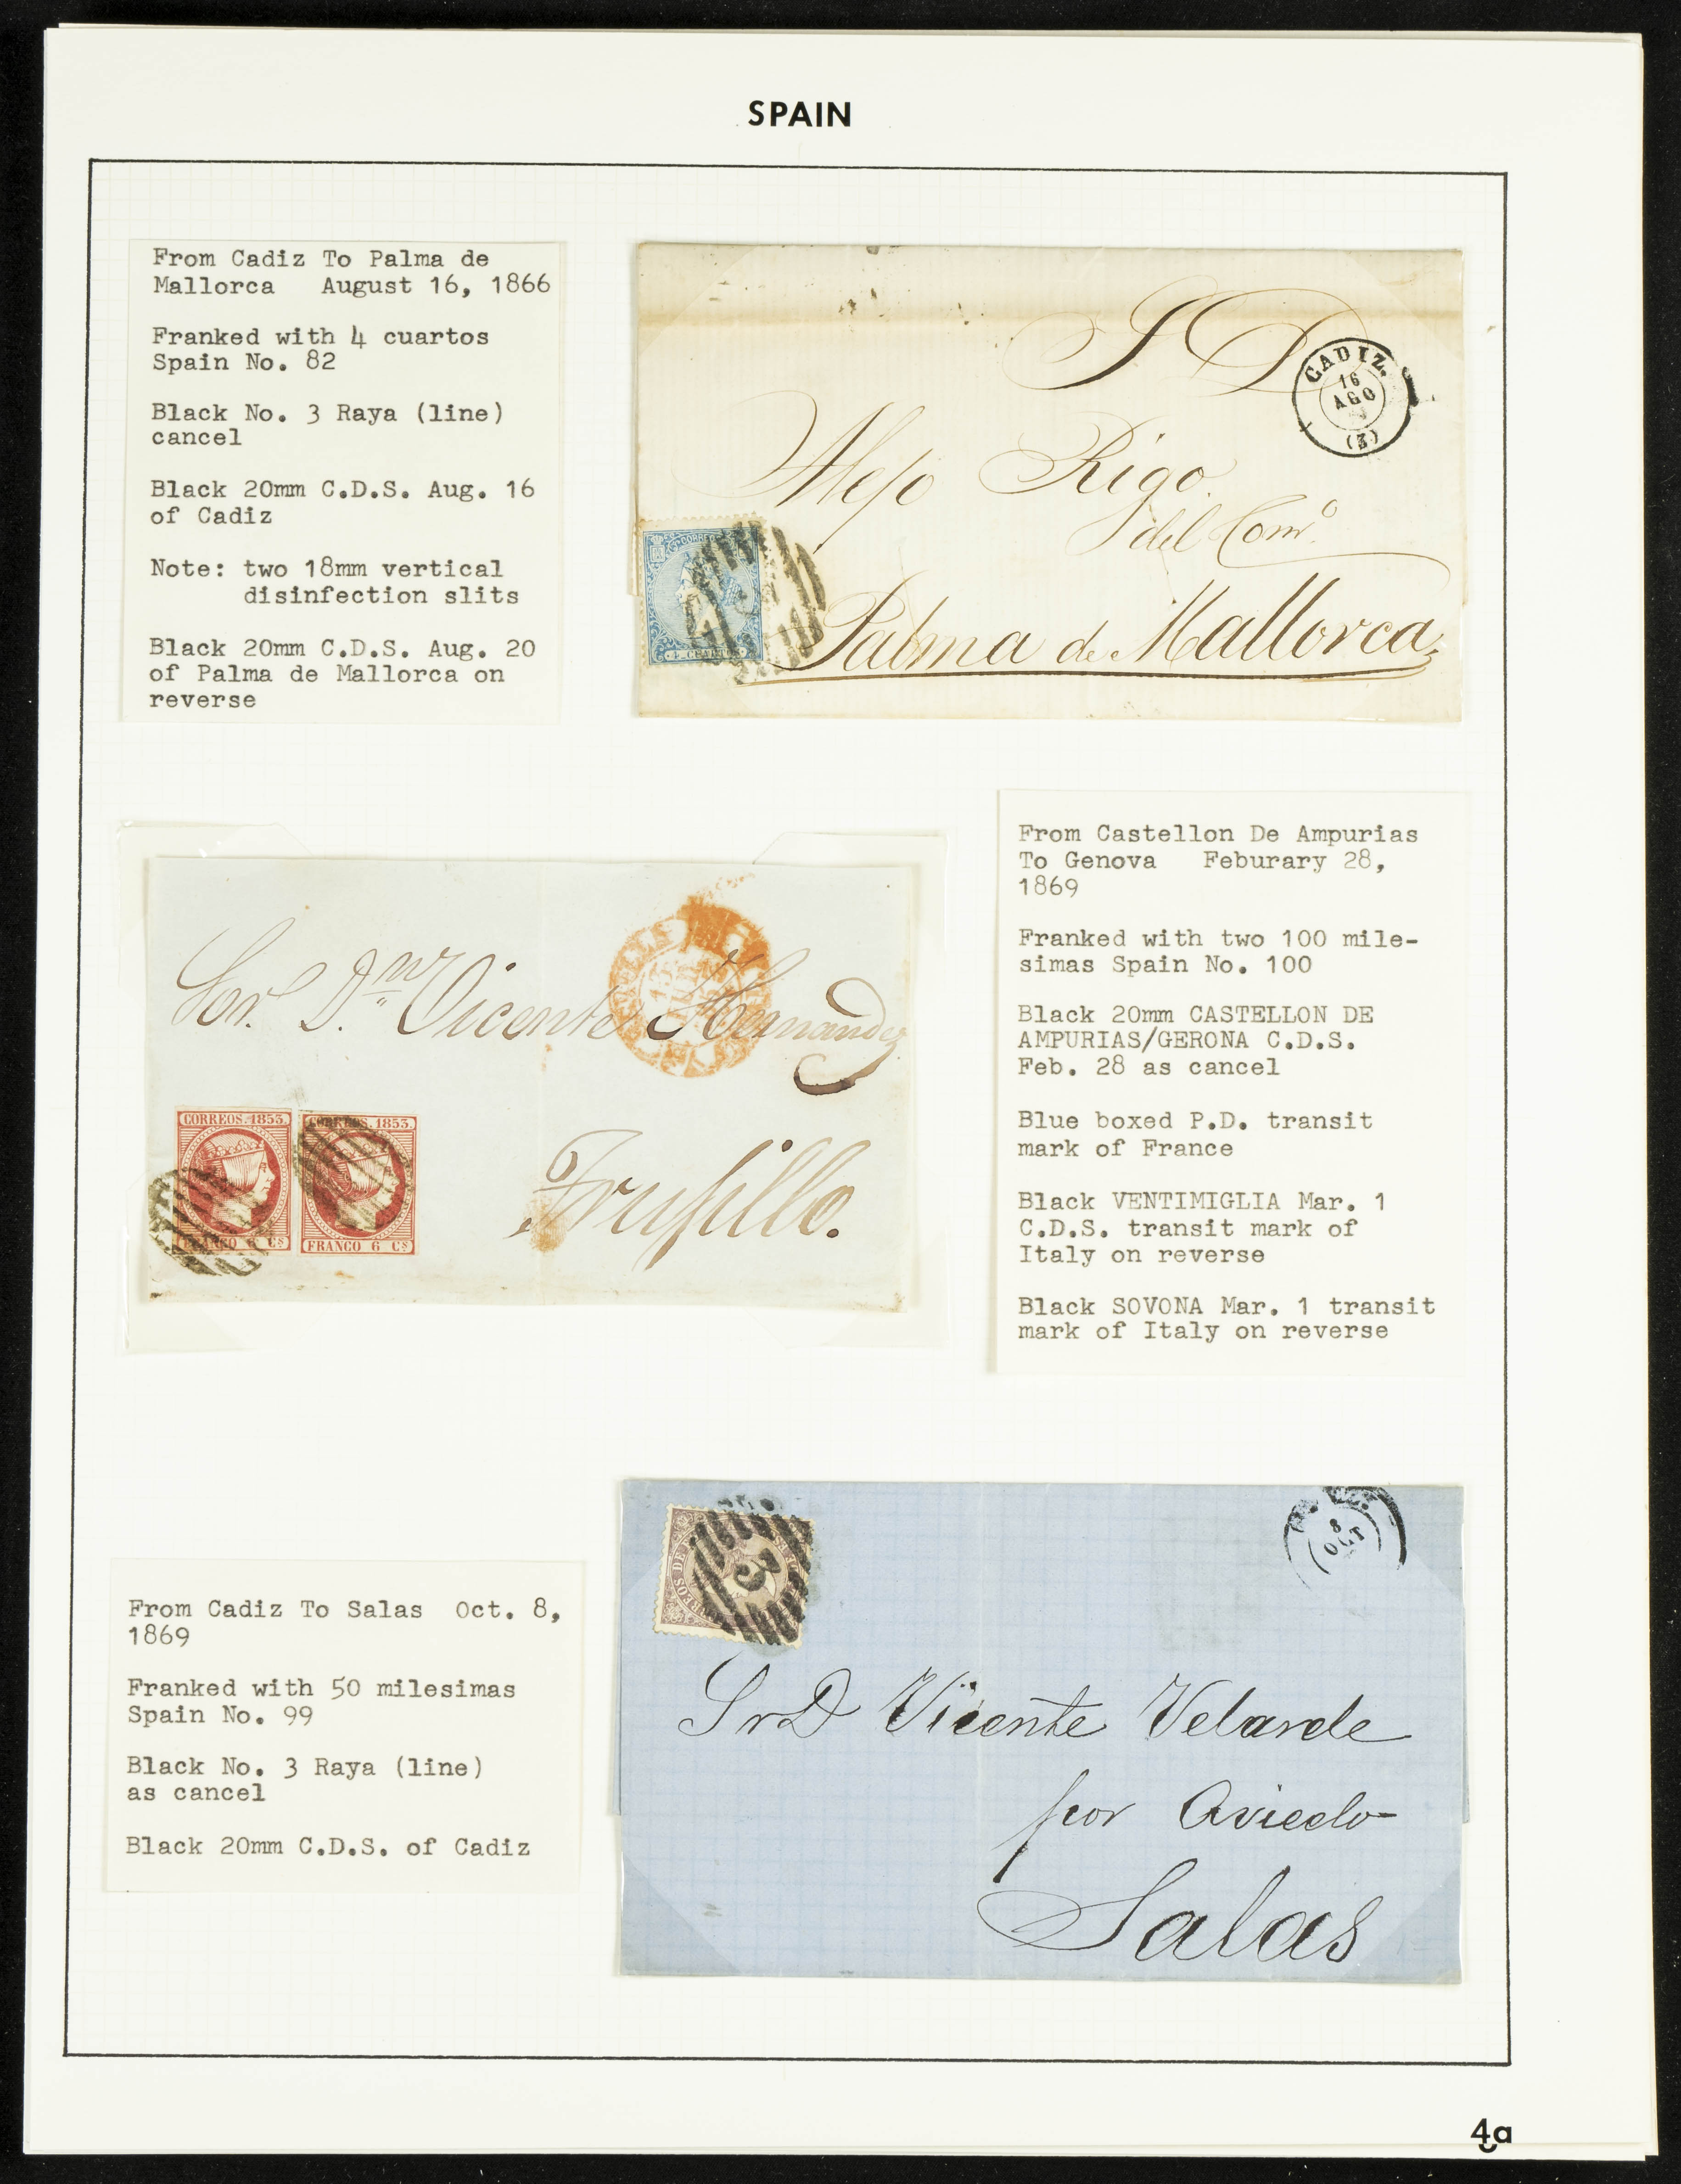 SPAIN
From Cadiz To Palma de
Mallorca August 16, 1866
Franked with 4 cuartos
Spain No. 82
Black No. 3 Raya (line)
cancel
Black 20mm C.D.S. Aug. 16
of Cadiz
Note: two 18mm vertical
disinfection slits
Black 20mm C.D.S. Aug. 20
of Palma de Mallorca on
reverse
S D
CADIZ.
16
AGO
(3)
Alejo Rigo
del Com.o
Palma de Mallorca
CORREOS
4 CUARTOS
Sor. Dn. Vicente Hernandez
Trujillo.
CORREOS. 1853.
FRANCO 6 Cs
CORREOS. 1853.
FRANCO 6 Cs
From Castellon De Ampurias
To Genova Feburary 28,
1869
Franked with two 100 mile-
simas Spain No. 100
Black 20mm CASTELLON DE
AMPURIAS/GERONA C.D.S.
Feb. 28 as cancel
Blue boxed P.D. transit
mark of France
Black VENTIMIGLIA Mar. 1
C.D.S. transit mark of
Italy on reverse
Black SOVONA Mar. 1 transit
mark of Italy on reverse
From Cadiz To Salas Oct. 8,
1869
Franked with 50 milesimas
Spain No. 99
Black No. 3 Raya (line)
as cancel
Black 20mm C.D.S. of Cadiz
3
8
OCT
Sr D Vicente Velarde
por Oviedo
Salas
4a